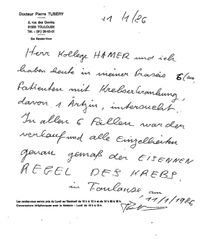 Docteur Pierre TUBERY
31000 TOULOUSE
11/1/86
Herr Kollege HAMER und ich
haben heute in meiner Praxis 6
Patienten mit Krebserkrankung,
davon 1 Ärztin, untersucht.
In allen 6 Fällen war der
Verlauf und alle Einzelheiten
genau gemäß der EISERNEN
REGEL DES KREBS.
in Toulouse
am 11/1/1986